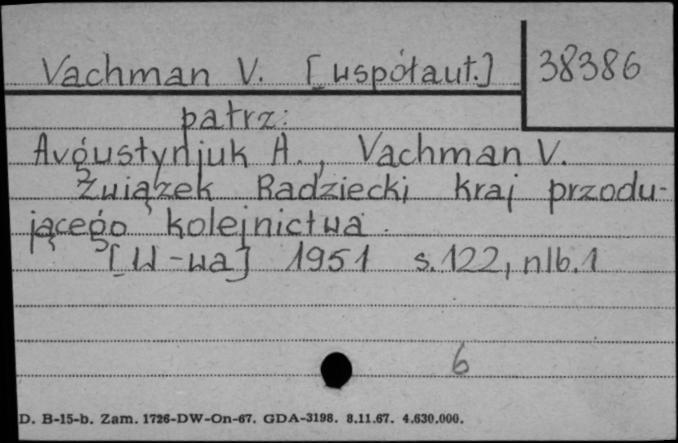 Vachman V. [współaut.] 38386
patrz:
Avgustynjuk A., Vachman V.
Związek Radziecki kraj przodu-
jącego kolejnictwa.
[W-wa] 1951 s. 122, nlb. 1
6
D. B-15-b. Zam. 1726-DW-On-67. GDA-3198. 8.11.67. 4.630.000.